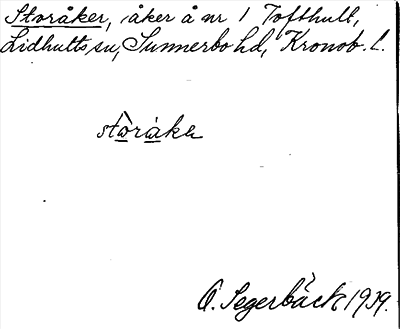 Storåker, åker å nr 1 Tofthult,
Lidhults sn, Sunnerbo hd, Kronob. l.
stòråkɐ
O. Segerbäck 1939.